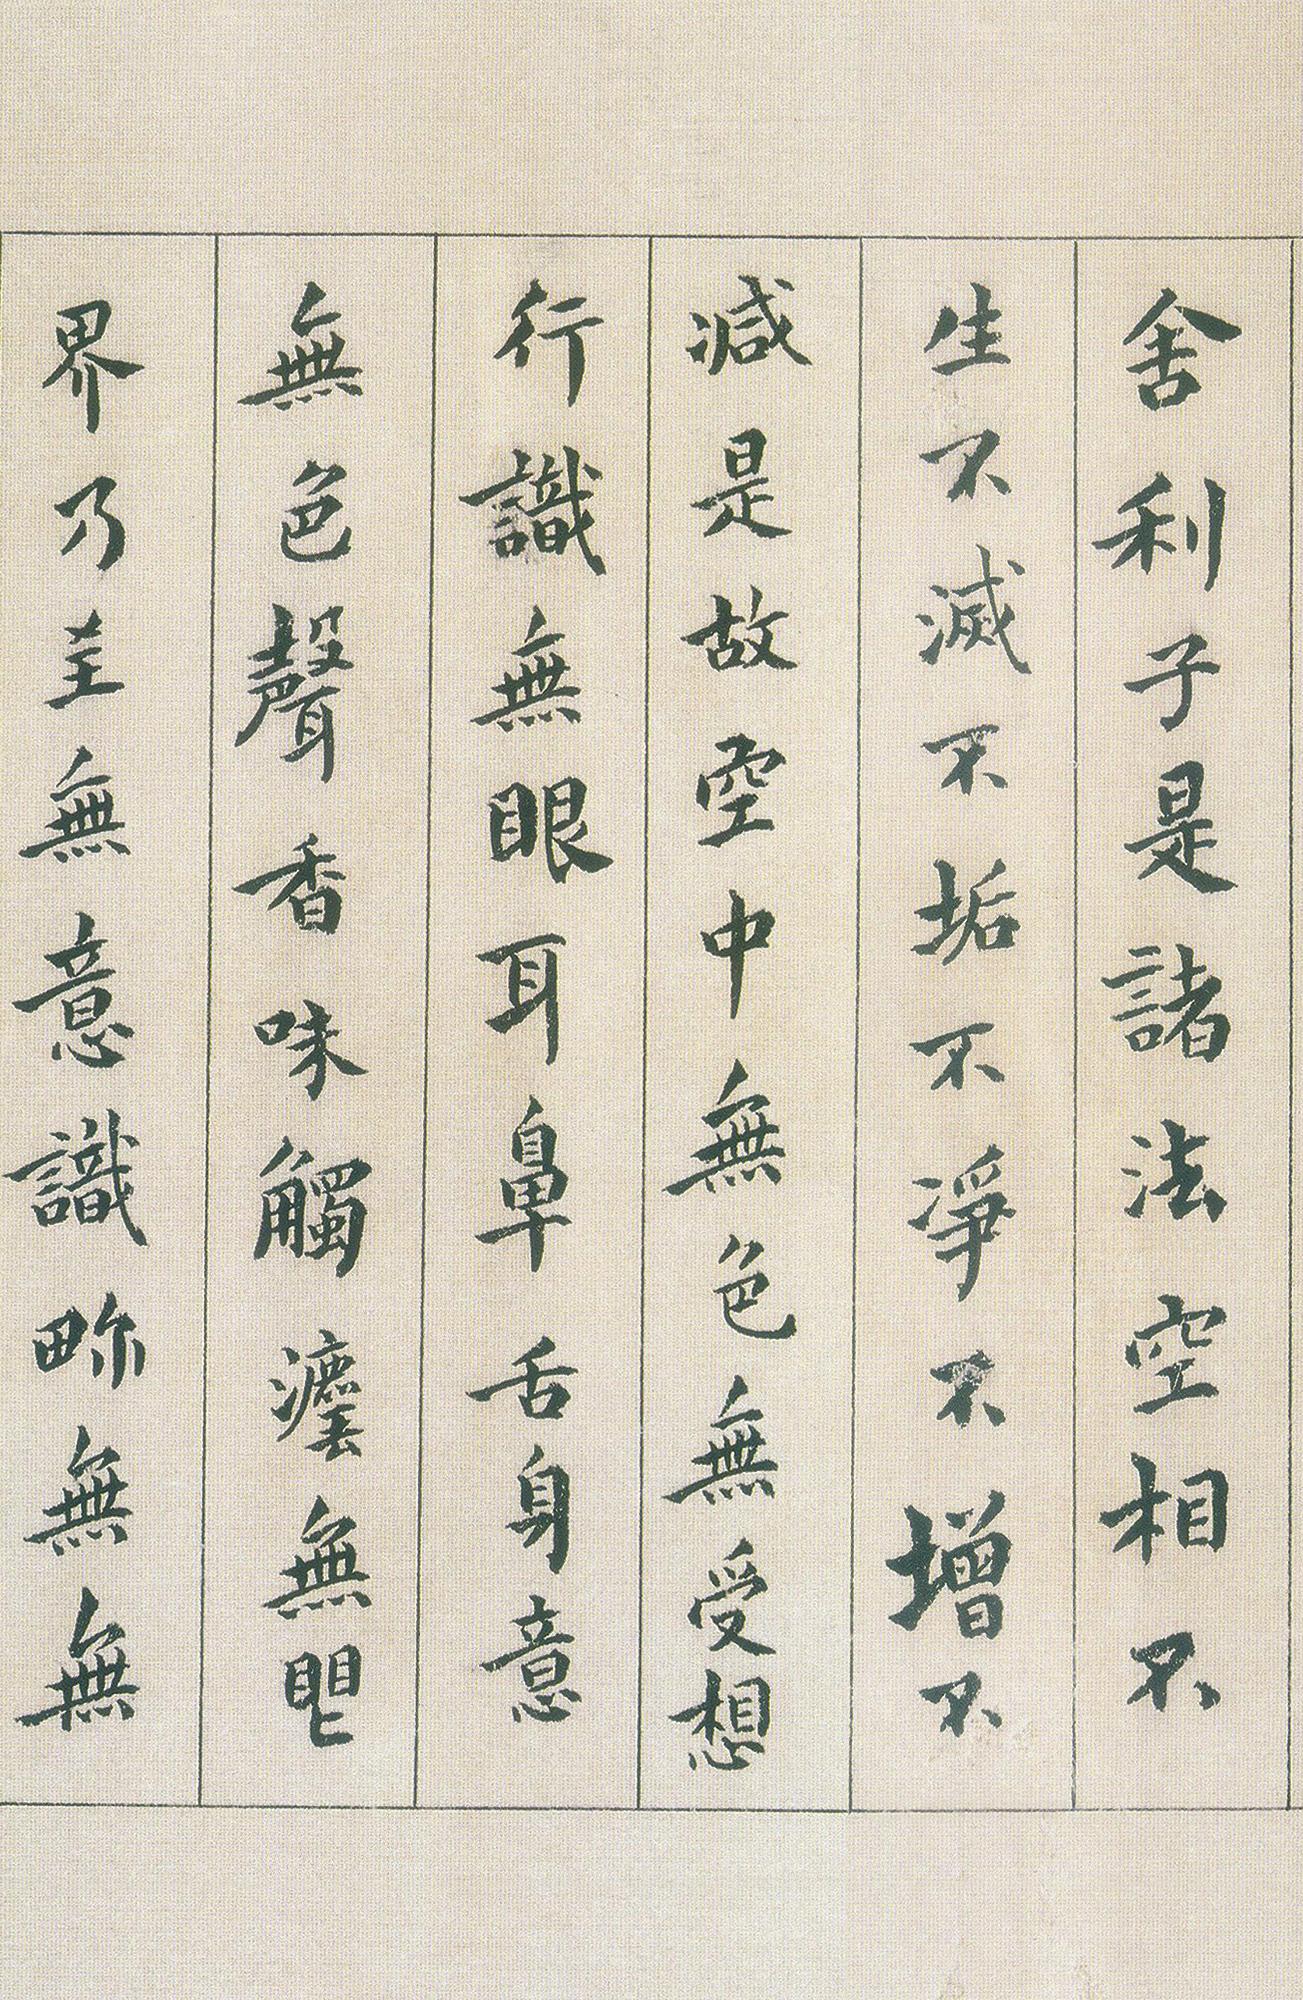 舍利子是諸法空相不
生不滅不垢不淨不增不
減是故空中無色無受想
行識無眼耳鼻舌身意
無色聲香味觸灋無眼
界乃至無意識畍無無